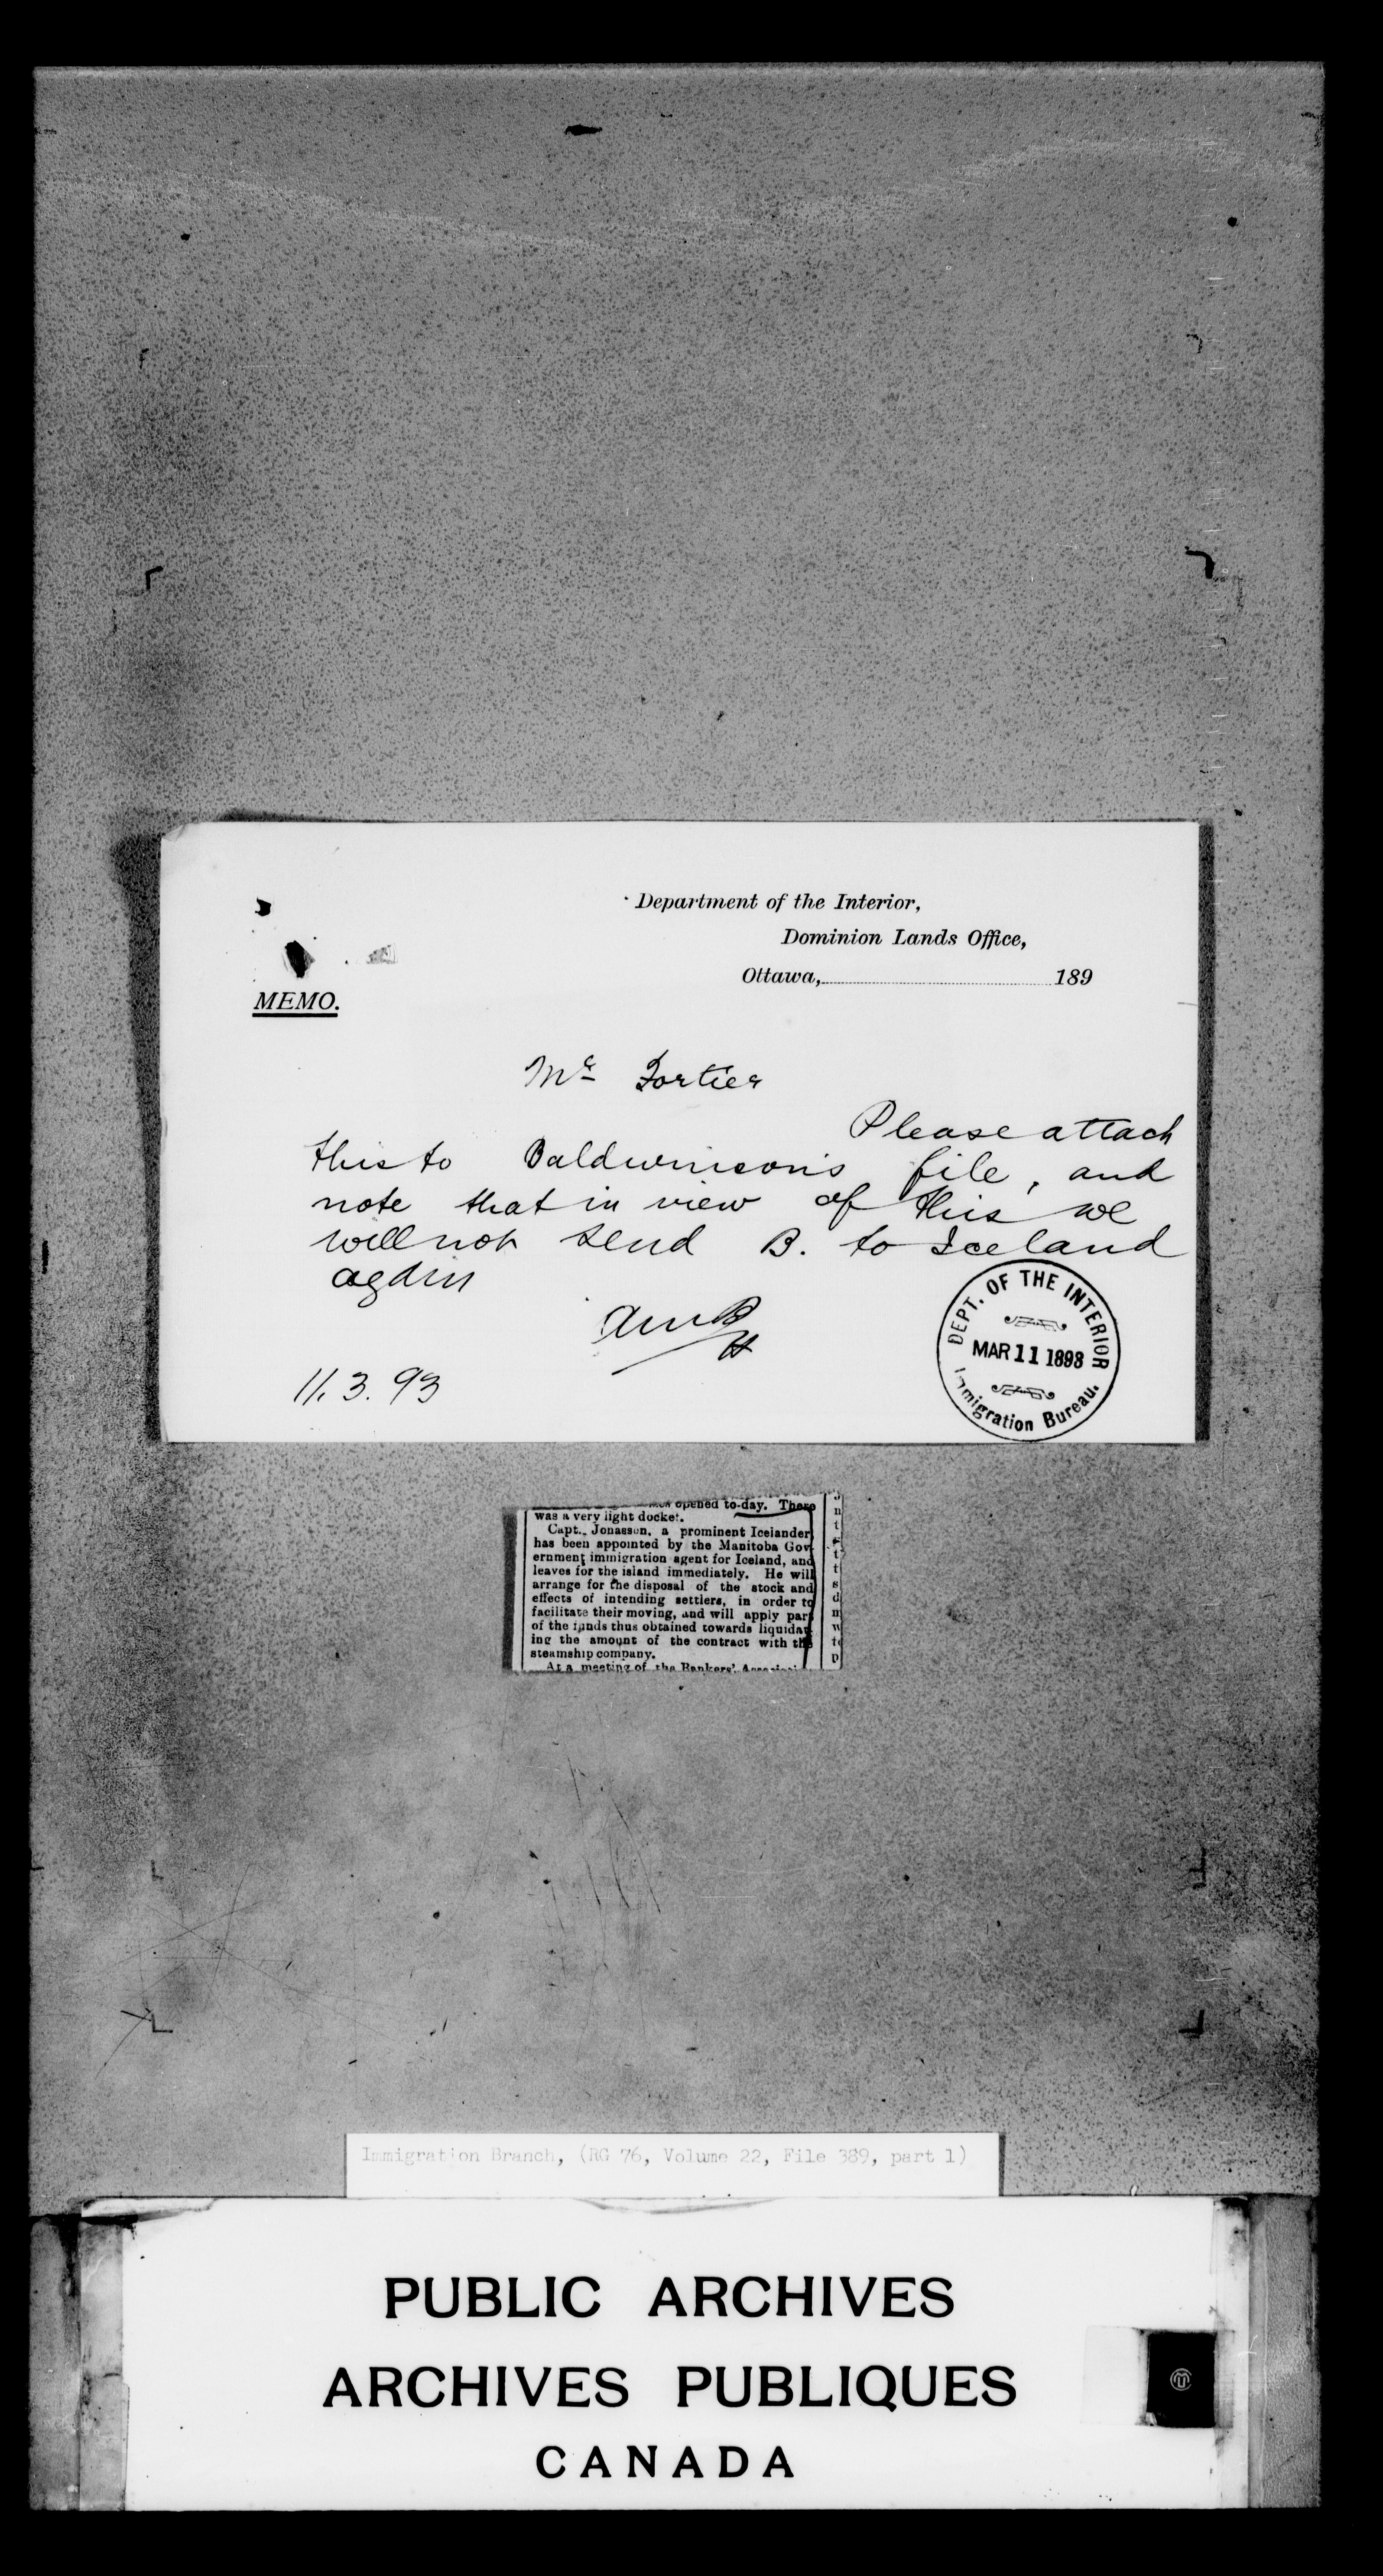 Department of the Interior,
Dominion Lands Office,
Ottawa, 189
MEMO.
Mr Fortier
Please attach
this to Baldwinson's file, and
note that in view of this we
will not send B. to Iceland
again
AMB
H
11.3.93
DEPT. OF THE INTERIOR
MAR 11 1893
Immigration Bureau.
opened to-day. There
was a very light docket.
Capt. Jonasson, a prominent Icelander
has been appointed by the Manitoba Gov
ernment immigration agent for Iceland, and
leaves for the island immediately. He will
arrange for the disposal of the stock and
effects of intending settlers, in order to
facilitate their moving, and will apply part
of the funds thus obtained towards liquidat
ing the amount of the contract with the
steamship company.
At a meeting of the Bankers'
Immigration Branch, (RG 76, Volume 22, File 389, part 1)
PUBLIC ARCHIVES
ARCHIVES PUBLIQUES
CANADA